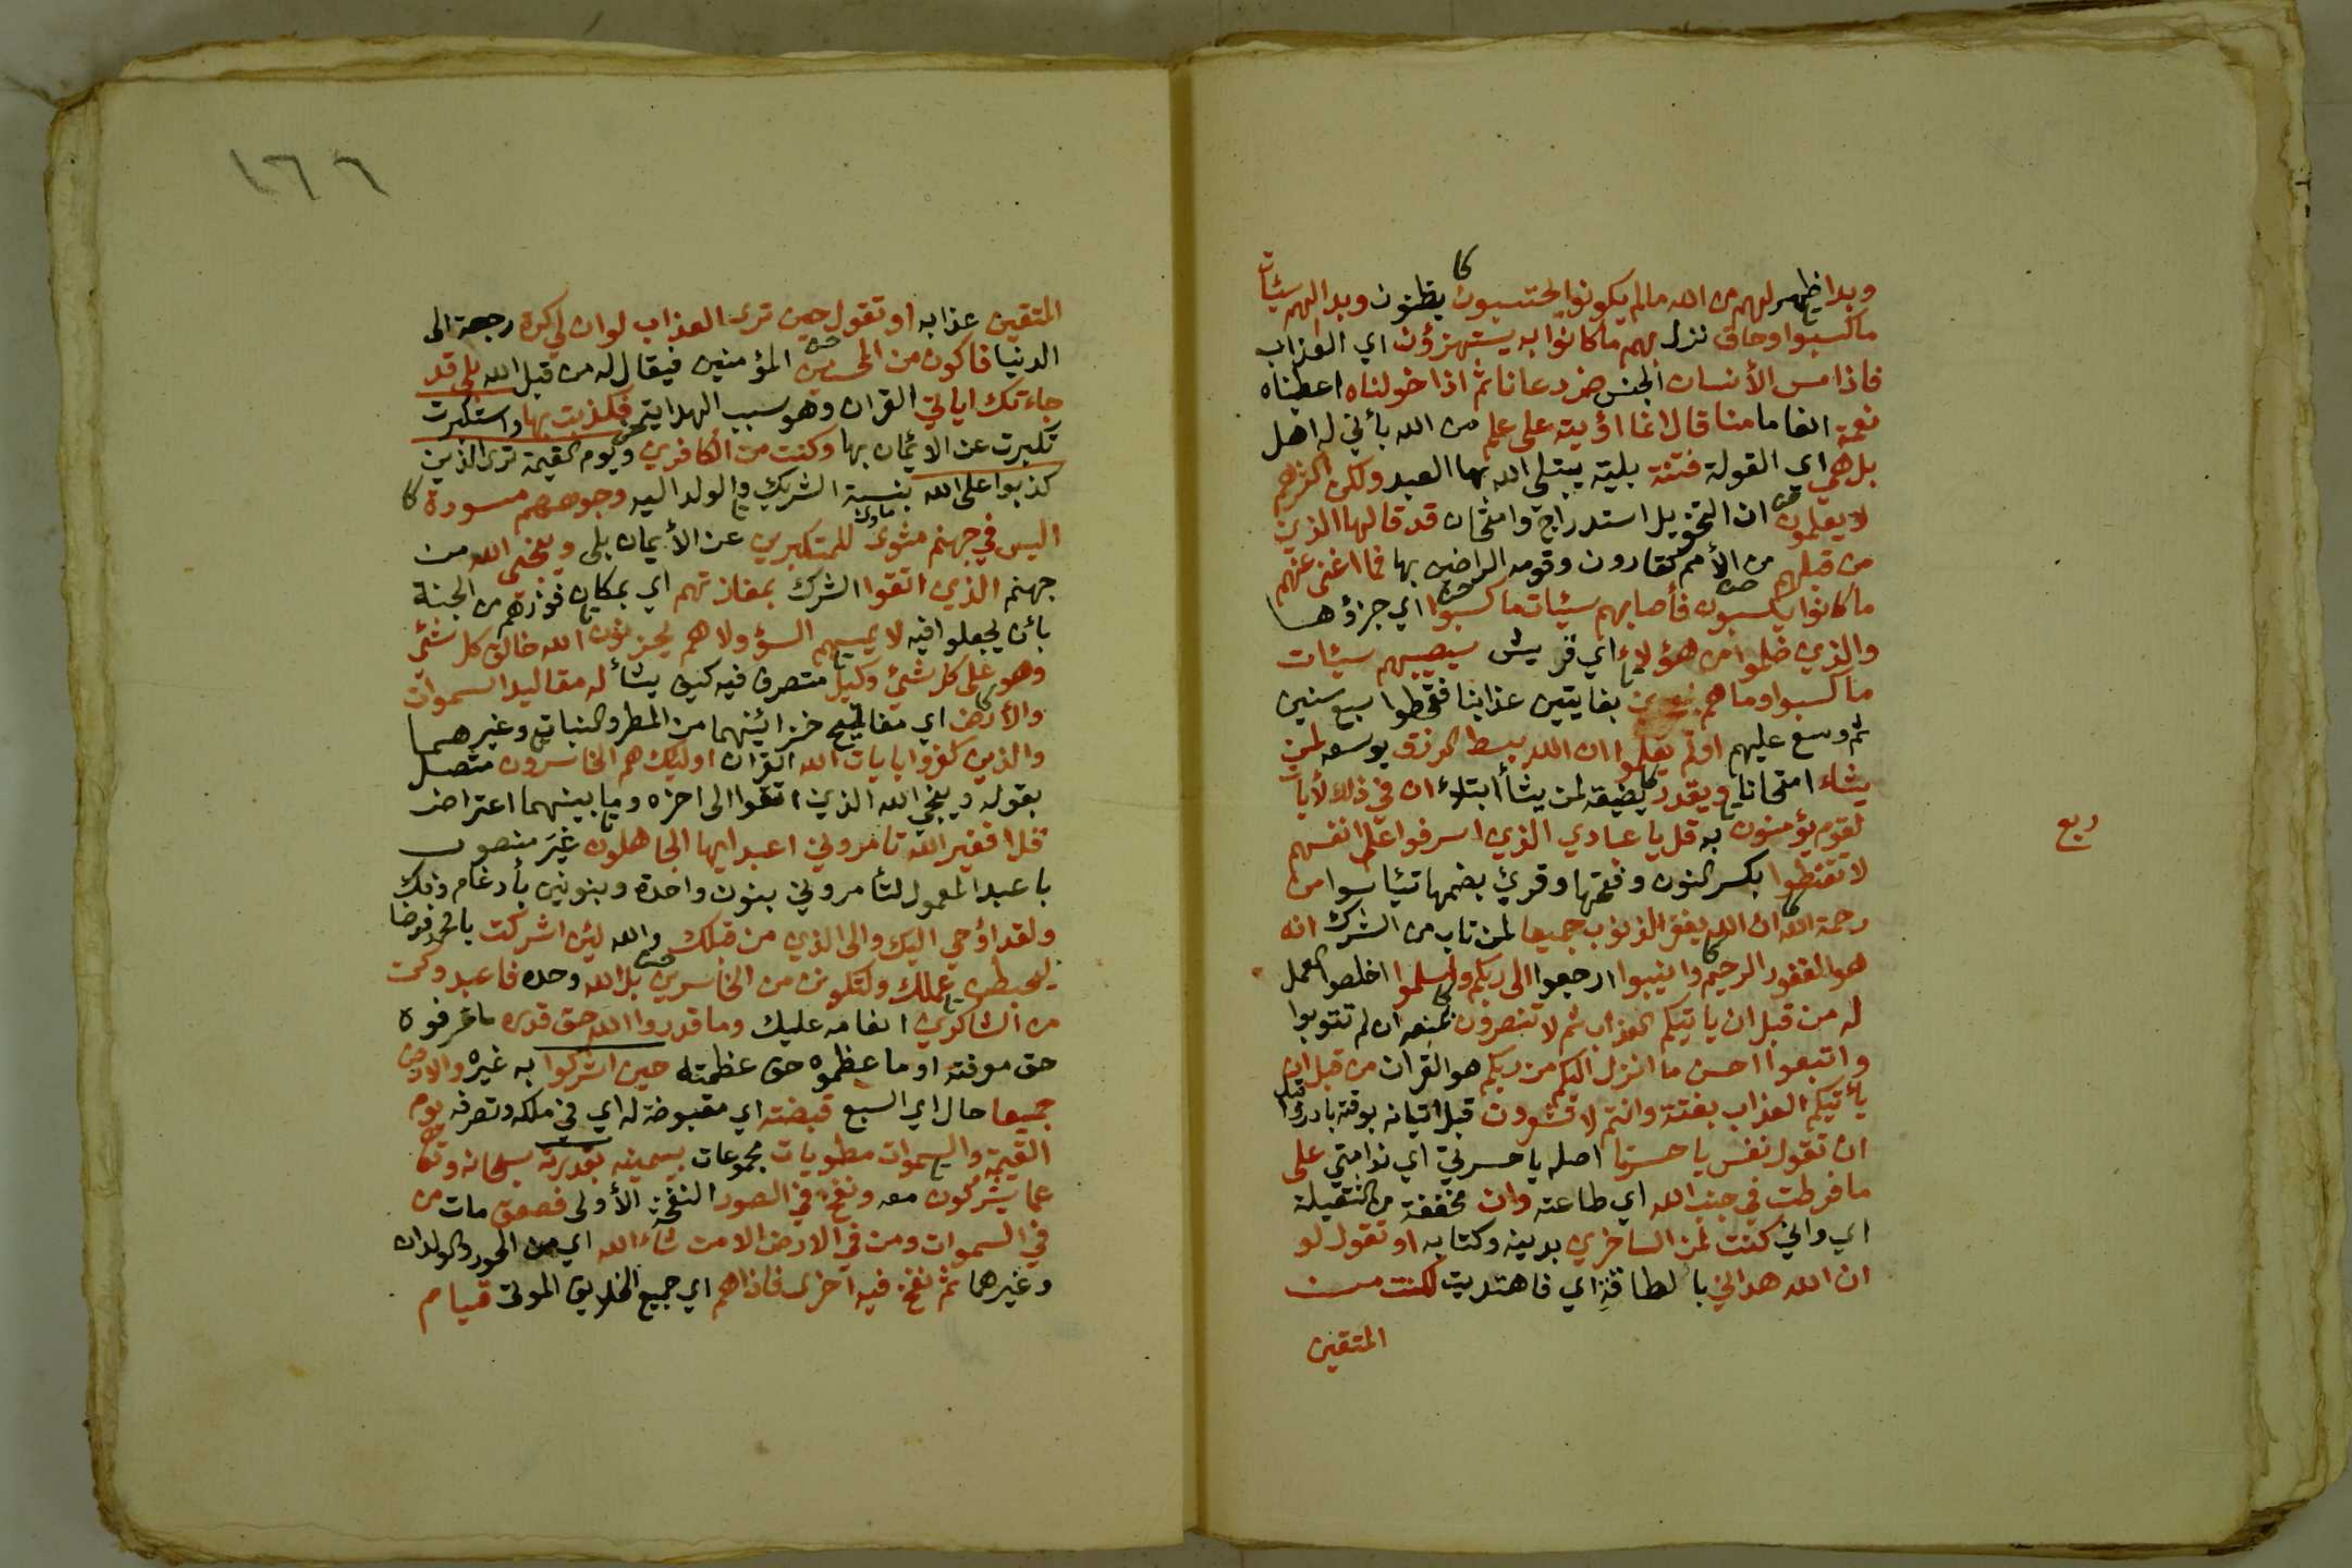 وبدا ظهر لهم من الله مالم يكونوا يحتسبون يظنون وبدا لهم سيئات
ما كسبوا وحاق نزل بهم ما كانوا به يستهزؤن اي العذاب
فاذا مس الأنسان الجنس ضر دعانا ثم اذا خولناه اعطيناه
نعمة انعاما منا قال انما اؤتيته على علم من الله بأني له اهل
بل هي اي القولة فتنة بلية يبتلي الله بها العبد ولكن اكثرهم
لا يعلمون ان التخويل استدراج وامتحان قد قالها الذين
من قبلهم من الأمم كقارون وقومه الراضين بها فما اغنى عنهم
ما كانوا يكسبون فأصابهم سيئات ما كسبوا اي جزؤها
والذين ظلموا من هؤلاء اي قريش سيصيبهم سيئات
ما كسبوا وما هم بفايتين عذابنا فقحطوا سبع سنين
ثم وسع عليهم اولم يعلموا ان الله يبسط الرزق يوسعه لمن
يشاء امتحانا ويقدر يضيقه لمن يشأ ابتلاء ان في ذلك لأيات
لقوم يؤمنون به قل يا عبادي الذين اسرفوا على انفسهم
لا تقنطوا بكسر النون وفتحها وقرئ بضمها تيئاسوا من
رحمة الله ان الله يغفر الذنوب جميعا لمن تاب من الشرك انه
هو الغفور الرحيم وانيبوا ارجعوا الى ربكم واسلموا اخلصوا العمل
له من قبل ان ياتيكم العذاب ثم لا تنصرون بمنعه ان لم تتوبوا
واتبعوا احسن ما انزل اليكم من ربكم هو القرأن من قبل ان
يأتيكم العذاب بغتة وانتم لا تشعرون قبل اتيانه بوقته بادروا قبل
ان تقول نفس يا حسرتا اصله يا حسرتي اي ندامتي على
ما فرطت في جنب الله اي طاعته وان مخففة من الثقيلة
اي واني كنت لمن الساخرين بدينه وكتابه او تقول لو
ان الله هداني بالطافه اي فاهتديت لكنت من
المتقين
ربع
١٦٦
المتقين عذابه او تقول حين ترى العذاب لو ان لي كرة رجعة الى
الدنيا فاكون من المحسنين المؤمنين فيقال له من قبل الله بلى قد
جاءتك اياتي القران وهو سبب الهداية فكذبت بها واستكبرت
تكبرت عن الأيمان بها وكنت من الكافرين ويوم القيمة ترى الذين
كذبوا على الله بنسبة الشريك والولد اليه وجوههم مسودة
اليس في جهنم مثوى ماوى للمتكبرين عن الأيمان بلى وينجي الله من
جهنم الذين اتقوا الشرك بمفازتهم اي بمكان فوزهم من الجنة
بأن يجعلوا فيه لا يمسهم السؤ ولا هم يحزنون الله خالق كل شئ
وهو على كل شئ وكيل متصرف فيه كيف يشأ له مقاليد السموات
والأرض اي مفاتيح خزائنهما من المطر والنبات وغيرهما
والذين كفروا بايات الله القران اوليك هم الخاسرون متصل
بقوله وينجي الله الذين اتقوا الى اخره وما بينهما اعتراض
قل افغير الله تامروني اعبد ايها الجاهلون غير منصوب
باعبد المعمول لتأمروني بنون واحدة وبنونين بأدغام وفك
ولقد اؤحي اليك والى الذين من قبلك والله لئن اشركت يا محمد فرضا
ليحبطن عملك ولتكونن من الخاسرين بل الله وحده فاعبد وكن
من الشاكرين انعامه عليك وما قدروا الله حق قدره ما عرفوه
حق معرفته او ما عظموه حق عظمته حين اشركوا به غيره والارض
جميعا حال اي السبع قبضته اي مقبوضة له اي في ملكه وتصرفه يوم
القيمة والسموات مطويات مجموعات بيمينه بقدرته سبحانه وتعالى
عما يشركون معه ونفخ في الصور النفخة الأولى فصعق مات من
في السموات ومن في الارض الا من شاء الله اي من الحور والولدان
وغيرهما ثم نفخ فيه اخرى فاذا هم اي جميع الخلايق الموتى قيام